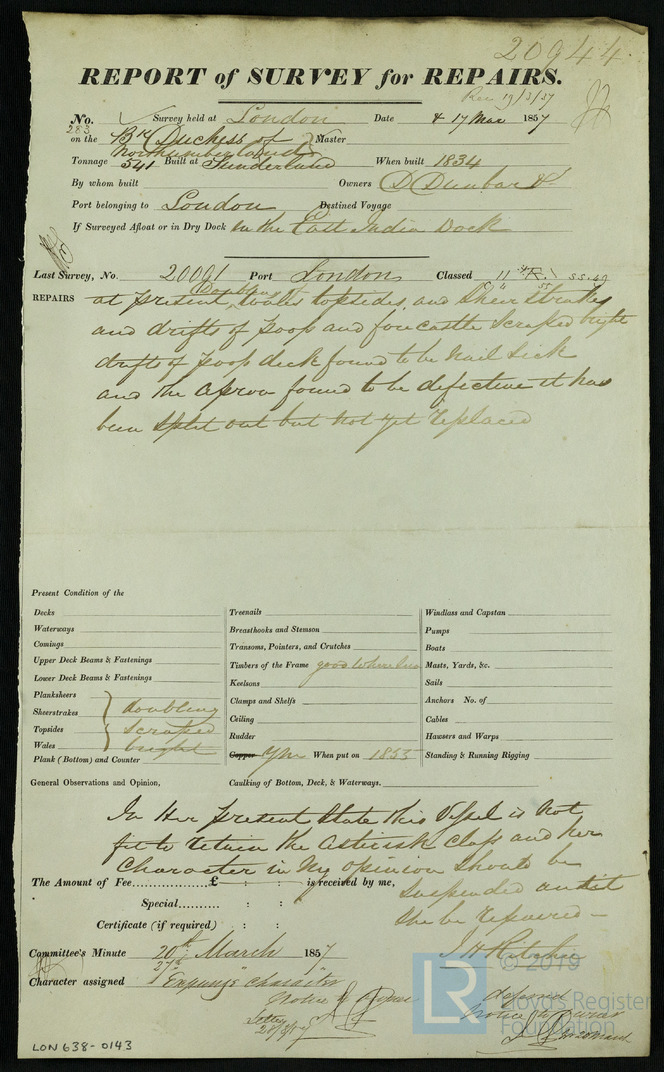 20944
REPORT of SURVEY for REPAIRS.
Rec 19/3/57
No. 283 Survey held at London Date 4 17 Mar 1857
on the Bk Duchess of Northumberland Master
Tonnage 541 Built at Sunderland When built 1834
By whom built Owners D Dunbar &
Port belonging to London Destined Voyage
If Surveyed Afloat or in Dry Dock In the East India Dock
Last Survey, No. 20091 Port London Classed 11 55.49
Doubling of
REPAIRS at present, Wales topsides and Sheer Strakes
and drifts of poop and forecastle scraped bright
drifts of poop deck found to be nail sick
and the apron found to be defective it has
been split out but not yet replaced
Present Condition of the
Decks
Waterways
Comings
Upper Deck Beams & Fastenings
Lower Deck Beams & Fastenings
Planksheers
Sheerstrakes doubling
Topsides scraped
Wales bright
Plank (Bottom) and Counter
Treenails
Breasthooks and Stemson
Transoms, Pointers, and Crutches
Timbers of the Frame good where seen
Keelsons
Clamps and Shelfs
Ceiling
Rudder
Copper YM When put on 1855
Windlass and Capstan
Pumps
Boats
Masts, Yards, &c.
Sails
Anchors No. of
Cables
Hawsers and Warps
Standing & Running Rigging
General Observations and Opinion, Caulking of Bottom, Deck, & Waterways.
In Her present state this Vessel is not
fit to retain the asterisk class and her
Character in my opinion should be
suspended until
she be repaired
The Amount of Fee................£ : : is received by me,
Special.......... : :
Certificate (if required) : :
J H Ritchie
Committee's Minute 20th March 1857
27th
Character assigned "Expunge" character
Notice to
Letter
deferred
Notice to Owner
© 2019
LR
Lloyd's Register
Foundation
LON 638-0143